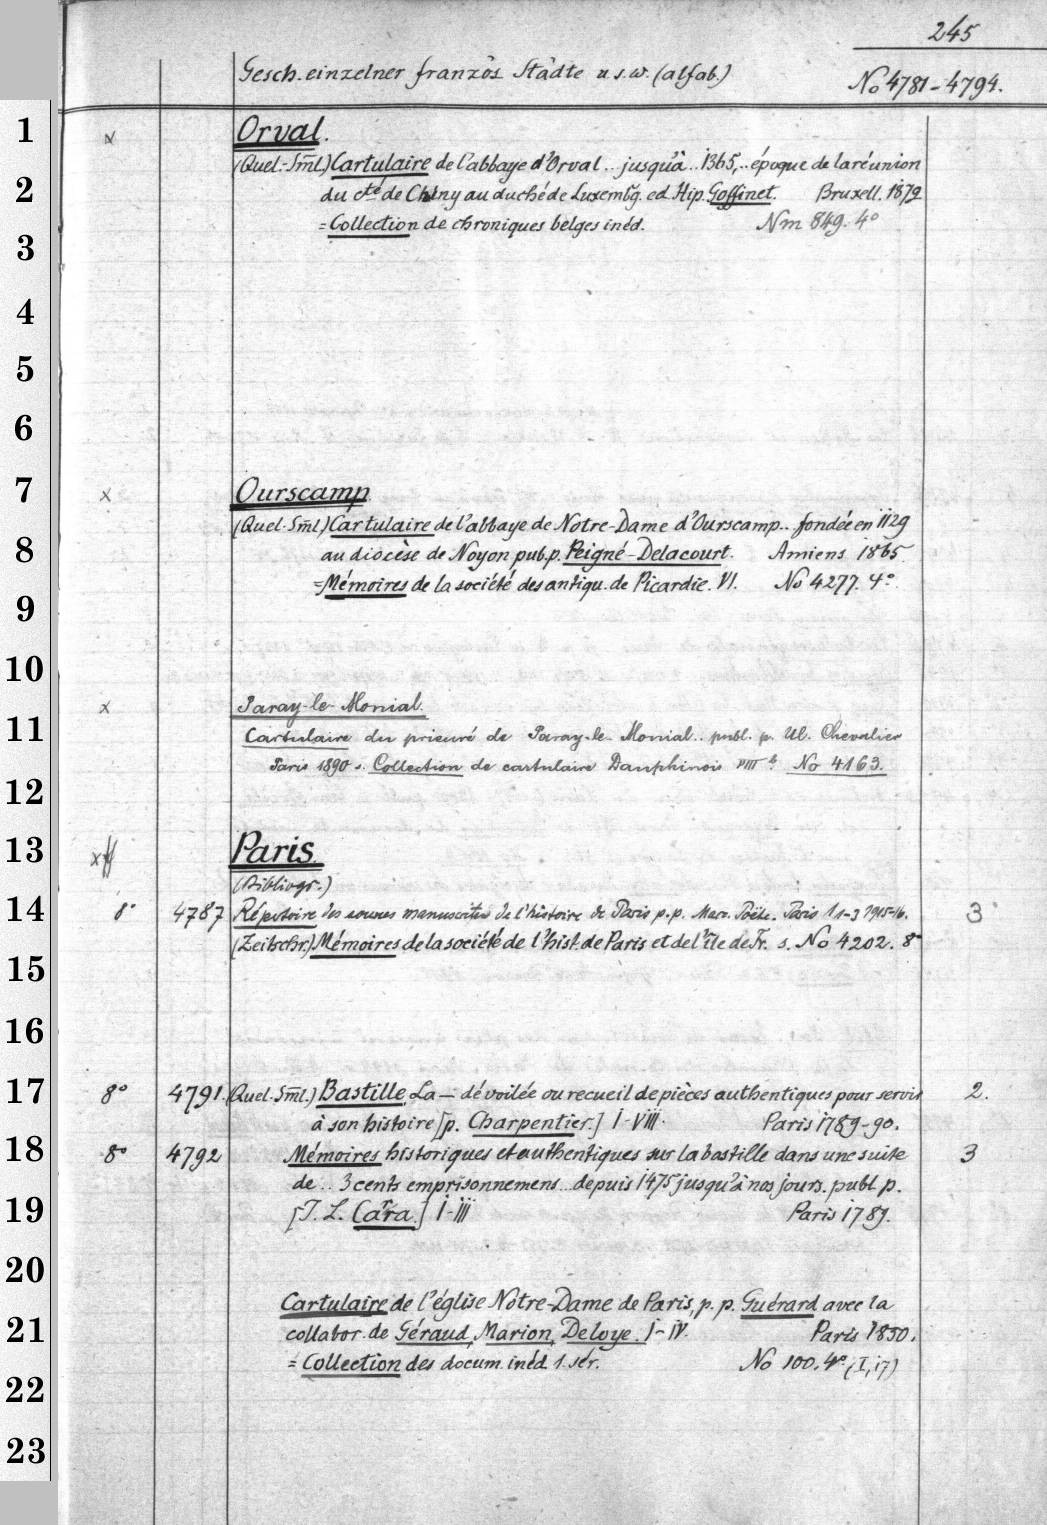 245
Gesch. einzelner französ Städte u.s.w. (alfab.)
No 4781-4794.
1
x
Orval.
(Quel-Sml.) Cartulaire de l'abbaye d'Orval .. jusqu'à .. 1365, .. époque de la réunion
2
du cté de Chiny au duché de Luxembg. ed. Hip. Goffinet. Bruxell. 1879
= Collection de chroniques belges inéd. Nm 849. 4°
3
4
5
6
7
x
Ourscamp
(Quel-Sml.) Cartulaire de l'abbaye de Notre-Dame d'Ourscamp .. fondée en 1129
8
au diocèse de Noyon pub. p. Peigné-Delacourt. Amiens 1865
= Mémoires de la société des antiqu. de Picardie. VI. No 4277. 4°
9
10
x
Paray-le-Monial.
11
Cartulaire du prieuré de Paray-le-Monial.. publ. p. Ul. Chevalier
Paris 1890 s. Collection de cartulaire Dauphinois VIII No 4163.
12
13
Paris
(Bibliogr.)
14
8° 4787 Répertoire des sources manuscrites de l'histoire de Paris p.p. Marc. Poëte. Paris 1 1-3 1915-16. 3
(Zeitschr.) Mémoires de la société de l'hist. de Paris et de l'île de Fr. s. No 4202. 8°
15
16
17
8° 4791. (Quel. Sml.) Bastille, La — dévoilée ou recueil de pièces authentiques pour servir 2.
à son histoire [p. Charpentier.] I-VIII. Paris 1789-90.
18
8° 4792 Mémoires historiques et authentiques sur la bastille dans une suite 3
de .. 3 cents emprisonnemens .. depuis 1475 jusqu'à nos jours. publ. p.
19
[J. L. Carra.] I-III Paris 1789.
20
Cartulaire de l'église Notre-Dame de Paris, p. p. Guérard avec la
21
collabor. de Géraud, Marion, Deloye. I-IV. Paris 1850.
= Collection des docum. inéd. 1. sér. No 100. 4°. (I, 17)
22
23